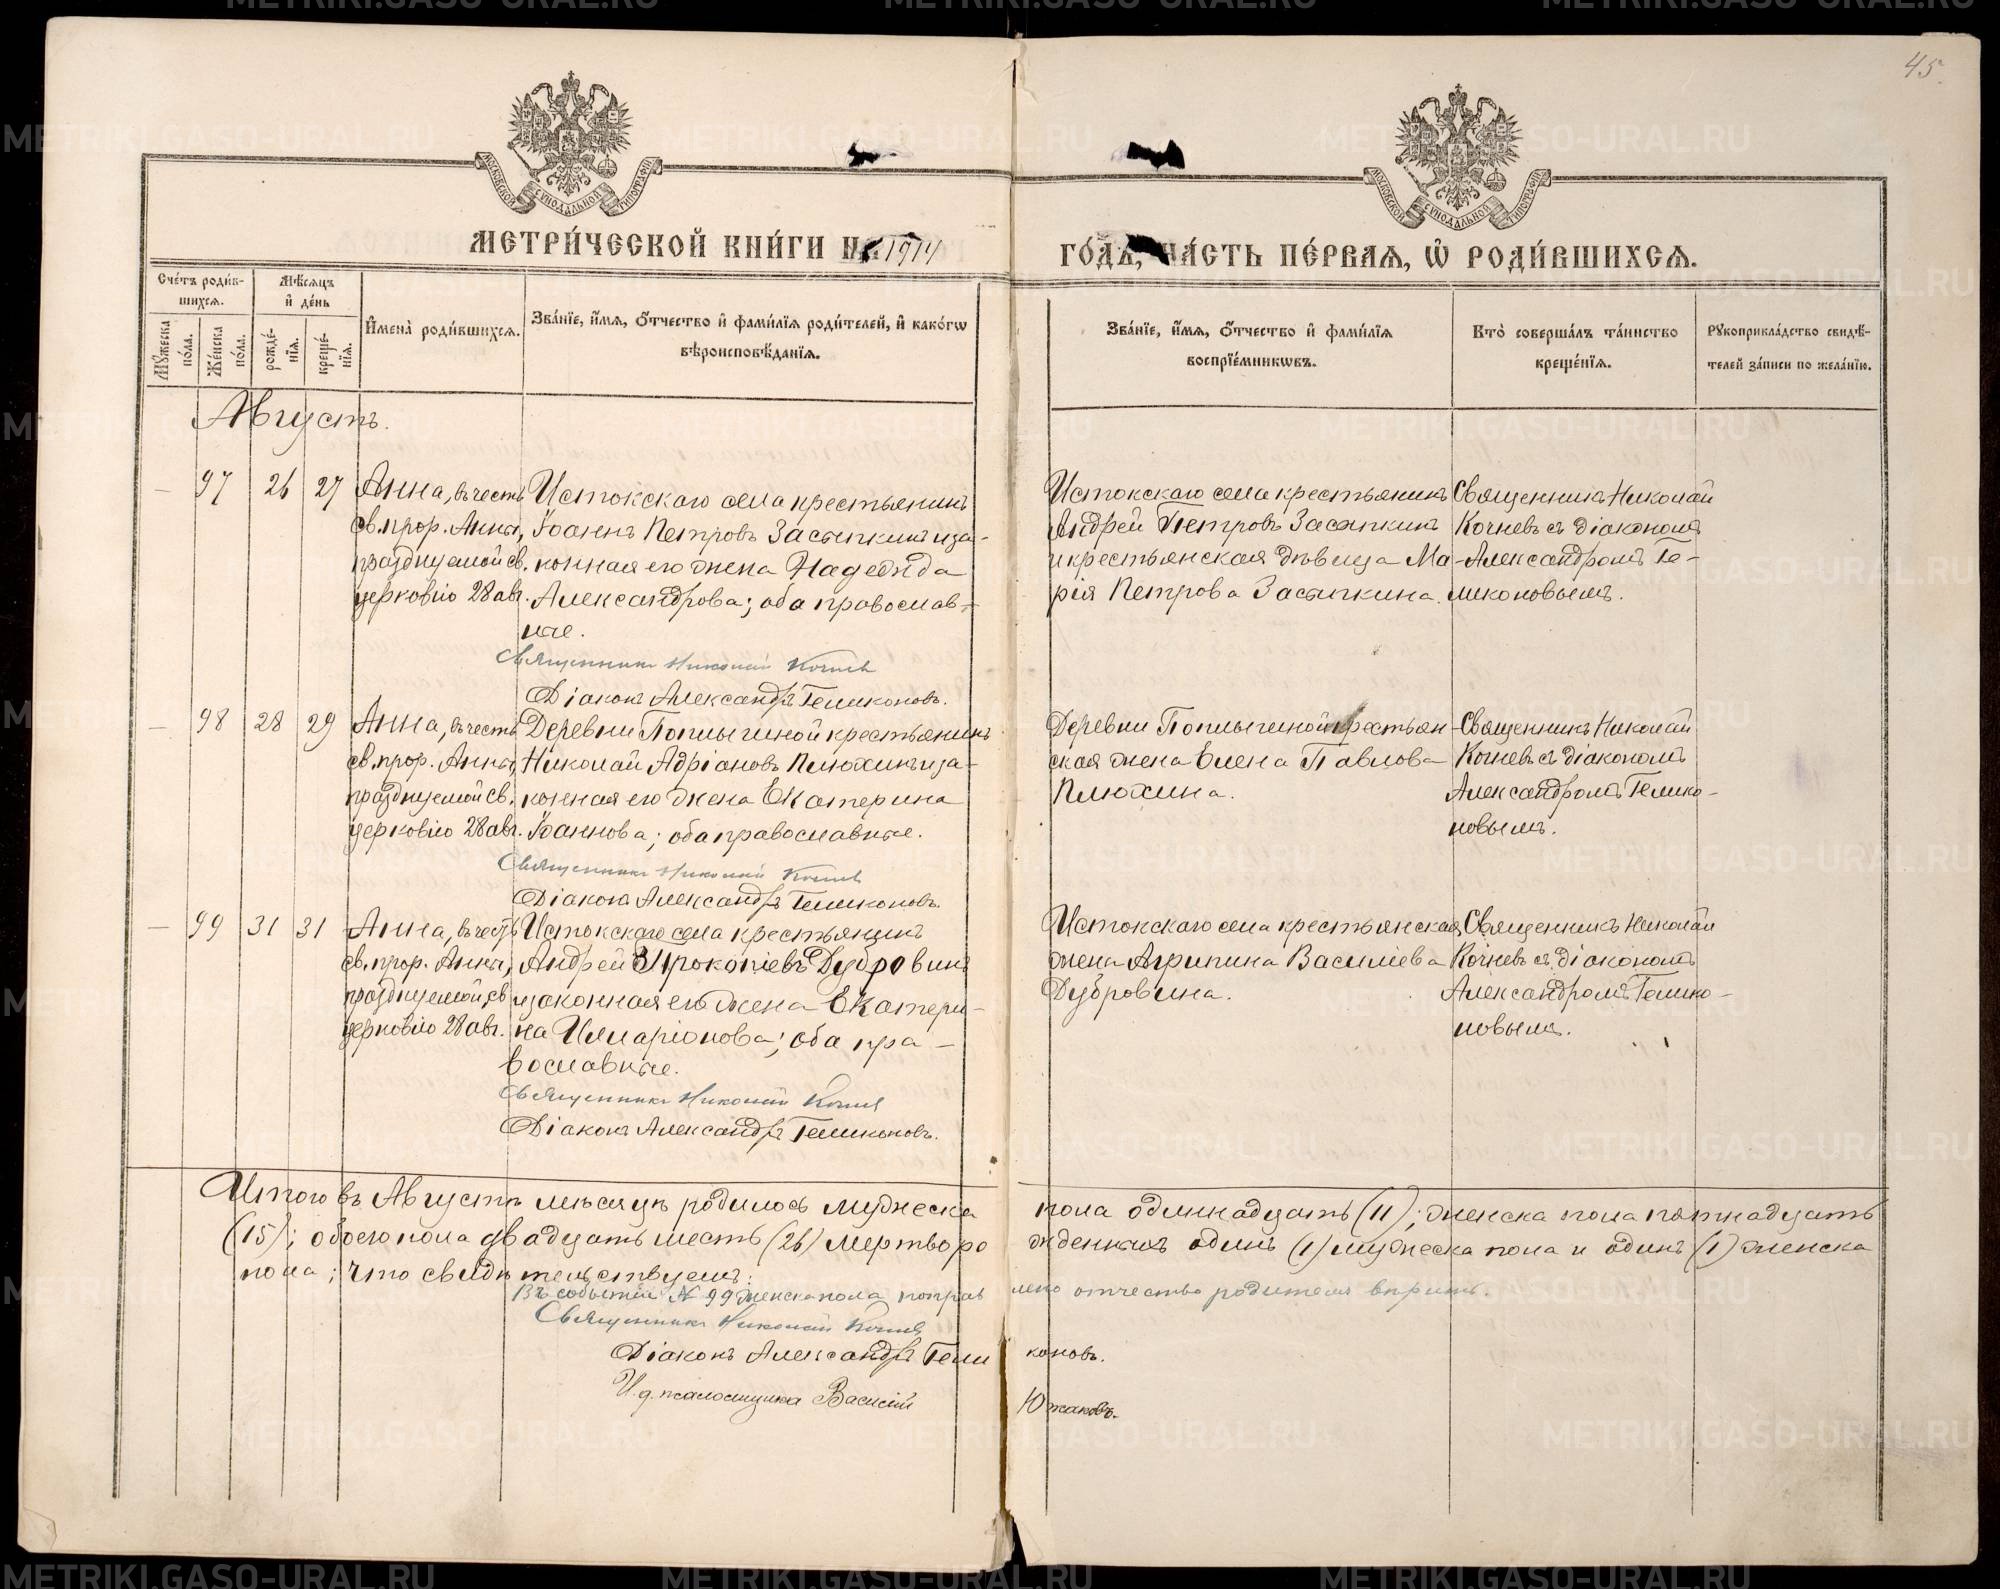 45.
МОСКОВСКОЙ СѴНОДАЛЬНОЙ ТИПОГРАФІИ
МОСКОВСКОЙ СѴНОДАЛЬНОЙ ТИПОГРАФІИ
МЕТРИ́ЧЕСКОЙ КНИ́ГИ Н 1914
ГО́ДЪ, ЧА́СТЬ ПЕ́РВАѦ, Ѡ҆ РОДИ́ВШИХСѦ.
Сче́тъ роди́в-
шихсѧ.
Мѣ́сѧцъ
и҆ де́нь
Мꙋ́жеска
по́ла.
Же́нска
по́ла.
рожде́-
нїѧ.
креще́-
нїѧ.
И҆мена̀ роди́вшихсѧ.
Зва́нїе, и҆́мѧ, ѻ҆́тчество и҆ фами́лїѧ роди́телей, и҆ како́гѡ
вѣроисповѣ́данїѧ.
Зва́нїе, и҆́мѧ, ѻ҆́тчество и҆ фами́лїѧ
воспрїе́мникѡвъ.
Кто̀ соверша́лъ та́инство
креще́нїѧ.
Рꙋкоприкла́дство свидѣ́-
телей за́писи по жела́нїю.
Августъ.
— 97 26 27
Анна, въ честь
св. прор. Анны,
празднуемой св.
церковію 28 авг.
Истокскаго села крестьянинъ
Іоаннъ Петровъ Засыпкинъ и за-
конная его жена Надежда
Александрова; оба православ-
ные.
Священникъ Николай Кочнев
Діаконъ Александръ Геликоновъ.
Истокскаго села крестьянинъ
Андрей Петровъ Засыпкинъ
и крестьянская дѣвица Ма-
рія Петрова Засыпкина.
Священникъ Николай
Кочневъ съ діакономъ
Александромъ Ге-
ликоновымъ.
— 98 28 29
Анна, въ честь
св. прор. Анны,
празднуемой св.
церковію 28 авг.
Деревни Поплыгиной крестьянинъ
Николай Адріановъ Плюхинъ и за-
конная его жена Екатерина
Іоаннова; оба православные.
Священникъ Николай Кочнев
Діаконъ Александръ Геликоновъ.
Деревни Поплыгиной крестьян-
ская жена Елена Павлова
Плюхина.
Священникъ Николай
Кочневъ съ діакономъ
Александромъ Гелико-
новымъ.
— 99 31 31
Анна, въ честь
св. прор. Анны,
празднуемой св.
церковію 28 авг.
Истокскаго села крестьянинъ
Андрей Прокопіевъ Дубровинъ
и законная его жена Екатери-
на Илларіонова; оба пра-
вославные.
Священникъ Николай Кочнев
Діаконъ Александръ Геликоновъ.
Истокскаго села крестьянская
жена Агрипина Василіева
Дубровина.
Священникъ Николай
Кочневъ съ діакономъ
Александромъ Гелико-
новымъ.
Итого въ Августѣ мѣсяцѣ родилось мужеска пола одиннадцать (11); женска пола пятнадцать
(15); обоего пола двадцать шесть (26) мертворожденныхъ одинъ (1) мужеска пола и одинъ (1) женска
пола; что свидѣтельствуемъ:
Въ событіи № 99 женска пола поправлено отчество родителя вѣрить.
Священникъ Николай Кочнев
Діаконъ Александръ Геликоновъ.
И. д. псаломщика Василій Южаковъ.